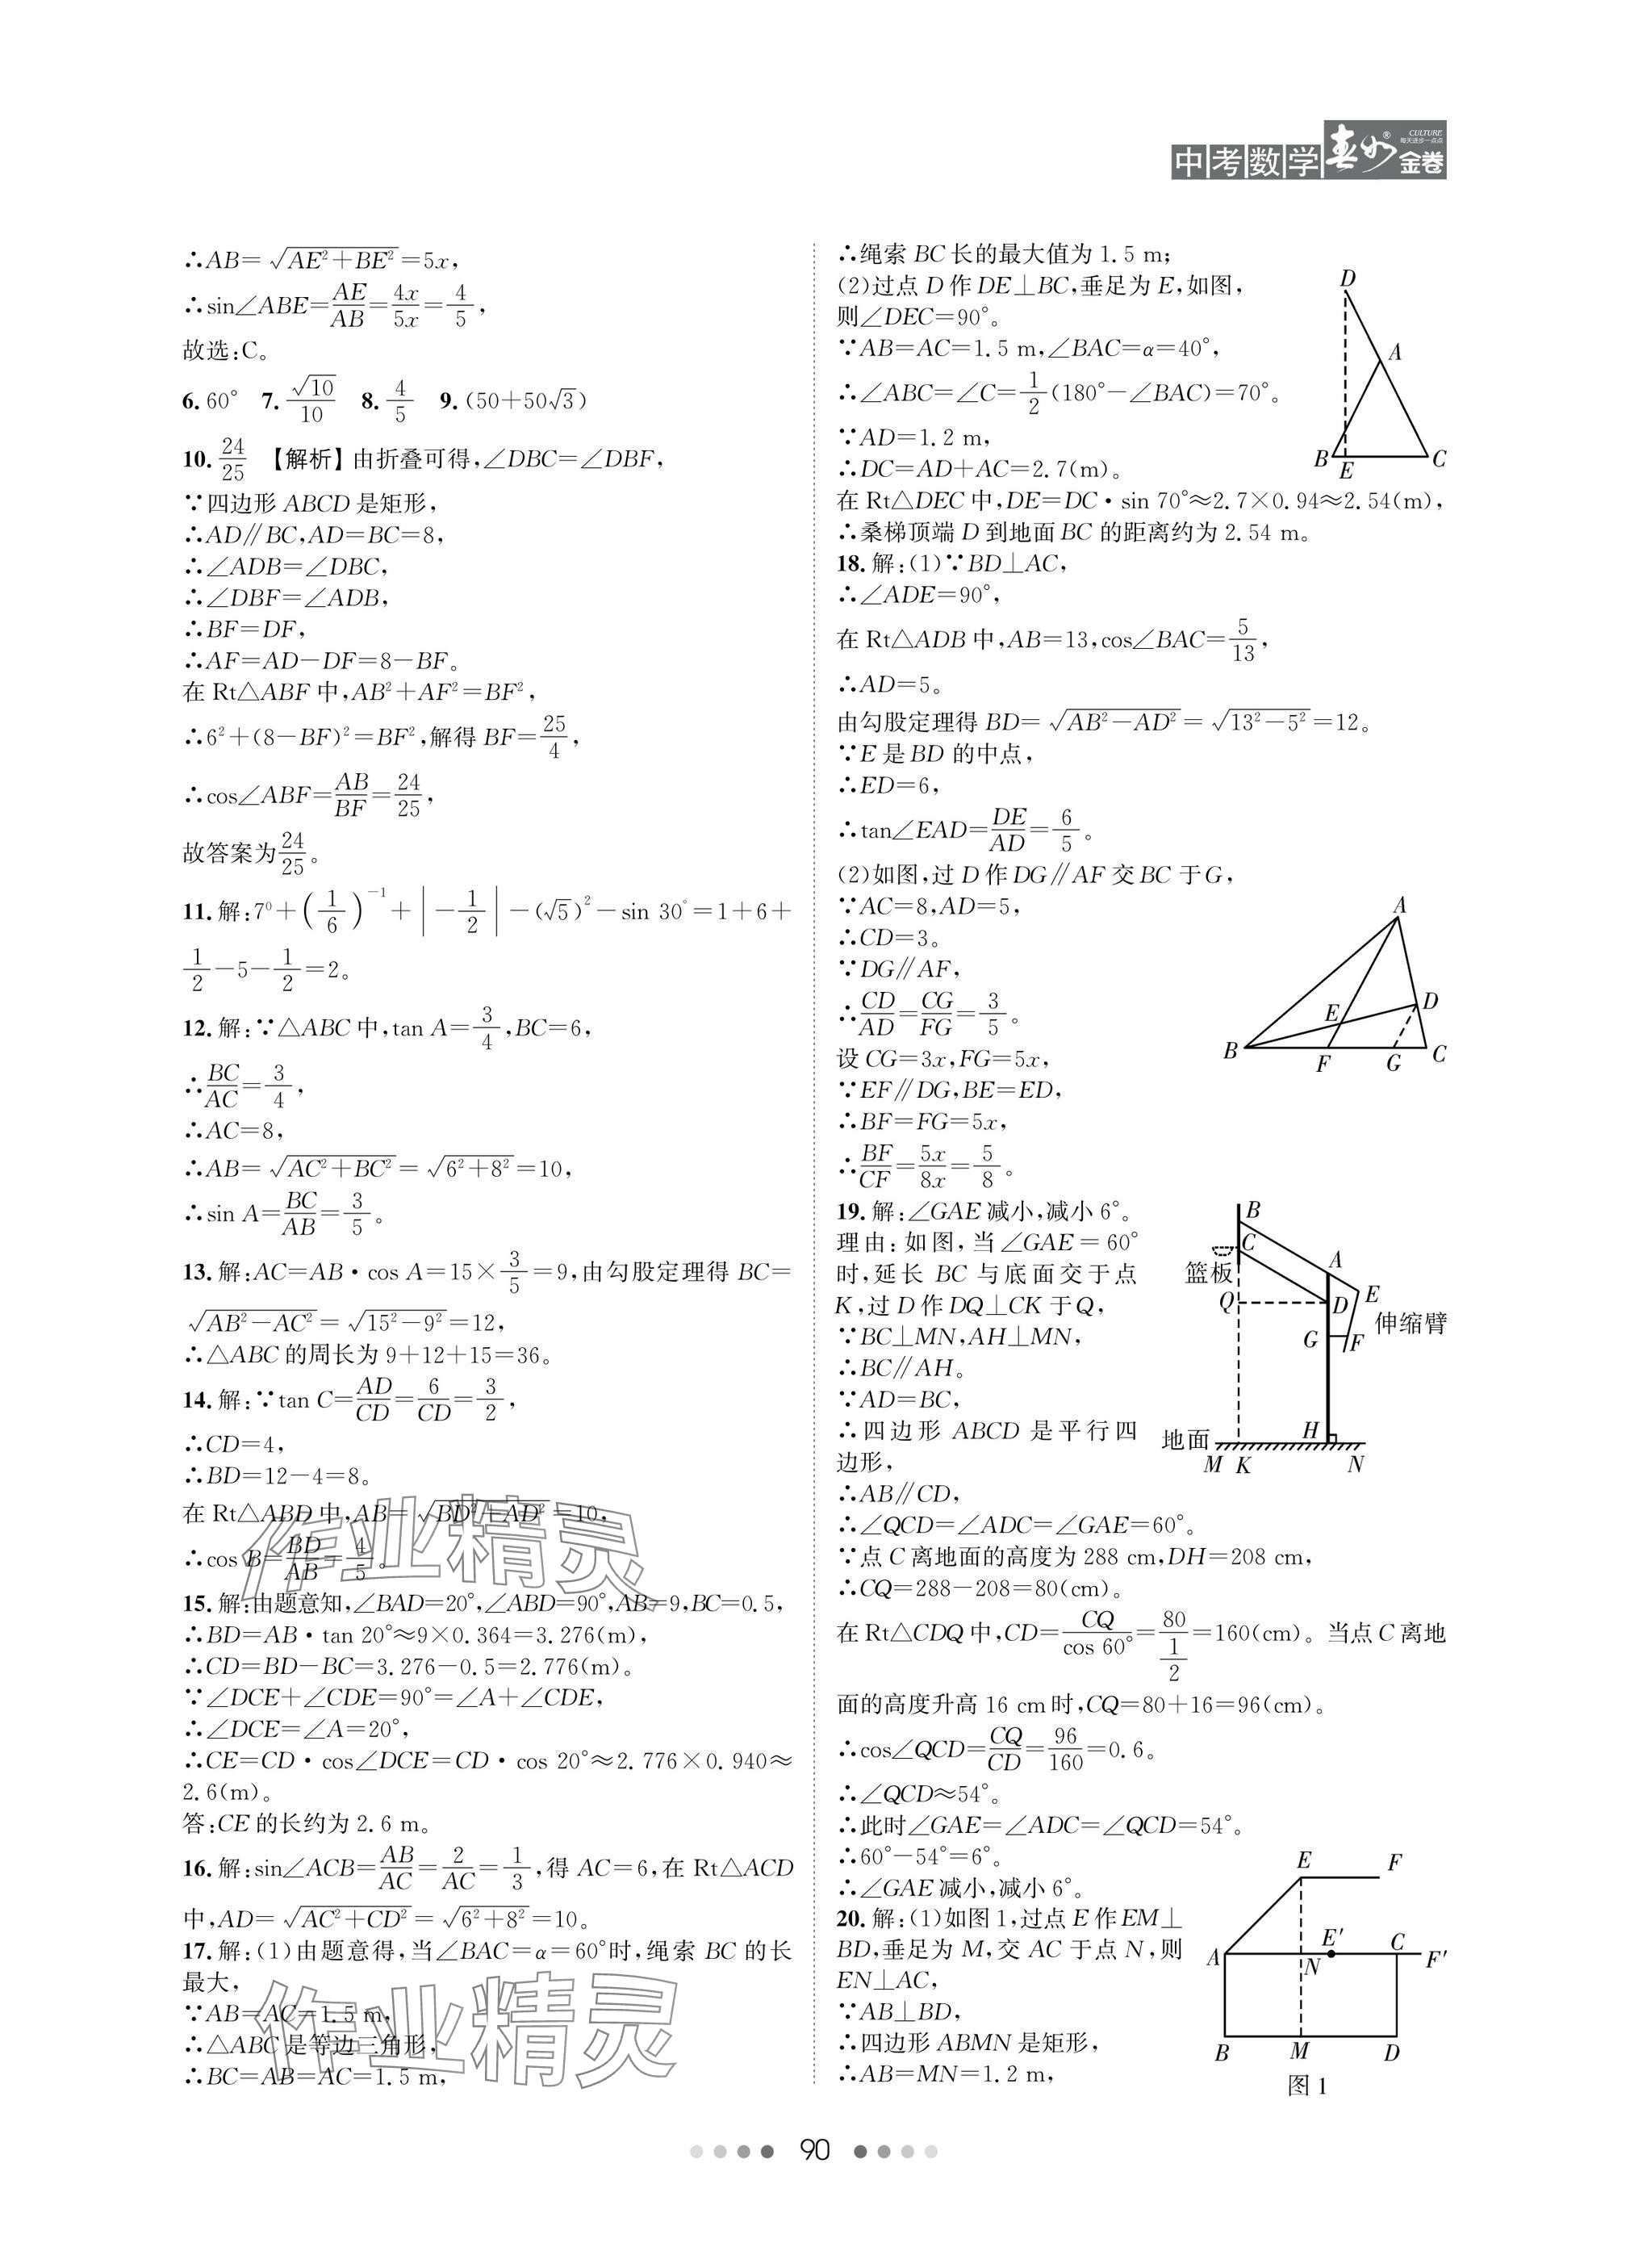 中考数学 春如® CULTURE 每天进步一点点 金卷
∴AB=√(AE²+BE²)=5x,
∴sin∠ABE=AE/AB=4x/5x=4/5,
故选:C。
6. 60° 7. √10/10 8. 4/5 9. (50+50√3)
10. 24/25 【解析】由折叠可得,∠DBC=∠DBF,
∵四边形 ABCD 是矩形,
∴AD∥BC,AD=BC=8,
∴∠ADB=∠DBC,
∴∠DBF=∠ADB,
∴BF=DF,
∴AF=AD-DF=8-BF。
在 Rt△ABF 中,AB²+AF²=BF²,
∴6²+(8-BF)²=BF²,解得 BF=25/4,
∴cos∠ABF=AB/BF=24/25,
故答案为24/25。
11. 解:7⁰+(1/6)⁻¹+|-1/2|-(√5)²-sin 30°=1+6+
1/2-5-1/2=2。
12. 解:∵△ABC 中,tan A=3/4,BC=6,
∴BC/AC=3/4,
∴AC=8,
∴AB=√(AC²+BC²)=√(6²+8²)=10,
∴sin A=BC/AB=3/5。
13. 解:AC=AB·cos A=15×3/5=9,由勾股定理得 BC=
√(AB²-AC²)=√(15²-9²)=12,
∴△ABC 的周长为 9+12+15=36。
14. 解:∵tan C=AD/CD=6/CD=3/2,
∴CD=4,
∴BD=12-4=8。
在 Rt△ABD 中,AB=√(BD²+AD²)=10,
∴cos B=BD/AB=4/5。
15. 解:由题意知,∠BAD=20°,∠ABD=90°,AB=9,BC=0.5,
∴BD=AB·tan 20°≈9×0.364=3.276(m),
∴CD=BD-BC=3.276-0.5=2.776(m)。
∵∠DCE+∠CDE=90°=∠A+∠CDE,
∴∠DCE=∠A=20°,
∴CE=CD·cos∠DCE=CD·cos 20°≈2.776×0.940≈
2.6(m)。
答:CE 的长约为 2.6 m。
16. 解:sin∠ACB=AB/AC=2/AC=1/3,得 AC=6,在 Rt△ACD
中,AD=√(AC²+CD²)=√(6²+8²)=10。
17. 解:(1)由题意得,当∠BAC=α=60°时,绳索 BC 的长
最大,
∵AB=AC=1.5 m,
∴△ABC 是等边三角形,
∴BC=AB=AC=1.5 m,
作业精灵
作业精灵
∴绳索 BC 长的最大值为 1.5 m;
(2)过点 D 作 DE⊥BC,垂足为 E,如图,
则∠DEC=90°。
∵AB=AC=1.5 m,∠BAC=α=40°,
∴∠ABC=∠C=1/2(180°-∠BAC)=70°。
∵AD=1.2 m,
∴DC=AD+AC=2.7(m)。
D
A
B E C
在 Rt△DEC 中,DE=DC·sin 70°≈2.7×0.94≈2.54(m),
∴桑梯顶端 D 到地面 BC 的距离约为 2.54 m。
18. 解:(1)∵BD⊥AC,
∴∠ADE=90°,
在 Rt△ADB 中,AB=13,cos∠BAC=5/13,
∴AD=5。
由勾股定理得 BD=√(AB²-AD²)=√(13²-5²)=12。
∵E 是 BD 的中点,
∴ED=6,
∴tan∠EAD=DE/AD=6/5。
(2)如图,过 D 作 DG∥AF 交 BC 于 G,
∵AC=8,AD=5,
∴CD=3。
∵DG∥AF,
∴CD/AD=CG/FG=3/5。
设 CG=3x,FG=5x,
∵EF∥DG,BE=ED,
∴BF=FG=5x,
∴BF/CF=5x/8x=5/8。
A
D
E
B F G C
19. 解:∠GAE 减小,减小 6°。
理由:如图,当∠GAE=60°
时,延长 BC 与底面交于点
K,过 D 作 DQ⊥CK 于 Q,
∵BC⊥MN,AH⊥MN,
∴BC∥AH。
∵AD=BC,
∴四边形 ABCD 是平行四
边形,
B
C
A
篮板
E
Q D
伸缩臂
G F
地面 H
M K N
∴AB∥CD,
∴∠QCD=∠ADC=∠GAE=60°。
∵点 C 离地面的高度为 288 cm,DH=208 cm,
∴CQ=288-208=80(cm)。
在 Rt△CDQ 中,CD=CQ/cos 60°=80/(1/2)=160(cm)。当点 C 离地
面的高度升高 16 cm 时,CQ=80+16=96(cm)。
∴cos∠QCD=CQ/CD=96/160=0.6。
∴∠QCD≈54°。
∴此时∠GAE=∠ADC=∠QCD=54°。
∴60°-54°=6°。
∴∠GAE 减小,减小 6°。
20. 解:(1)如图 1,过点 E 作 EM⊥
BD,垂足为 M,交 AC 于点 N,则
EN⊥AC,
∵AB⊥BD,
∴四边形 ABMN 是矩形,
∴AB=MN=1.2 m,
E F
A N E′ C F′
B M D
图 1
90